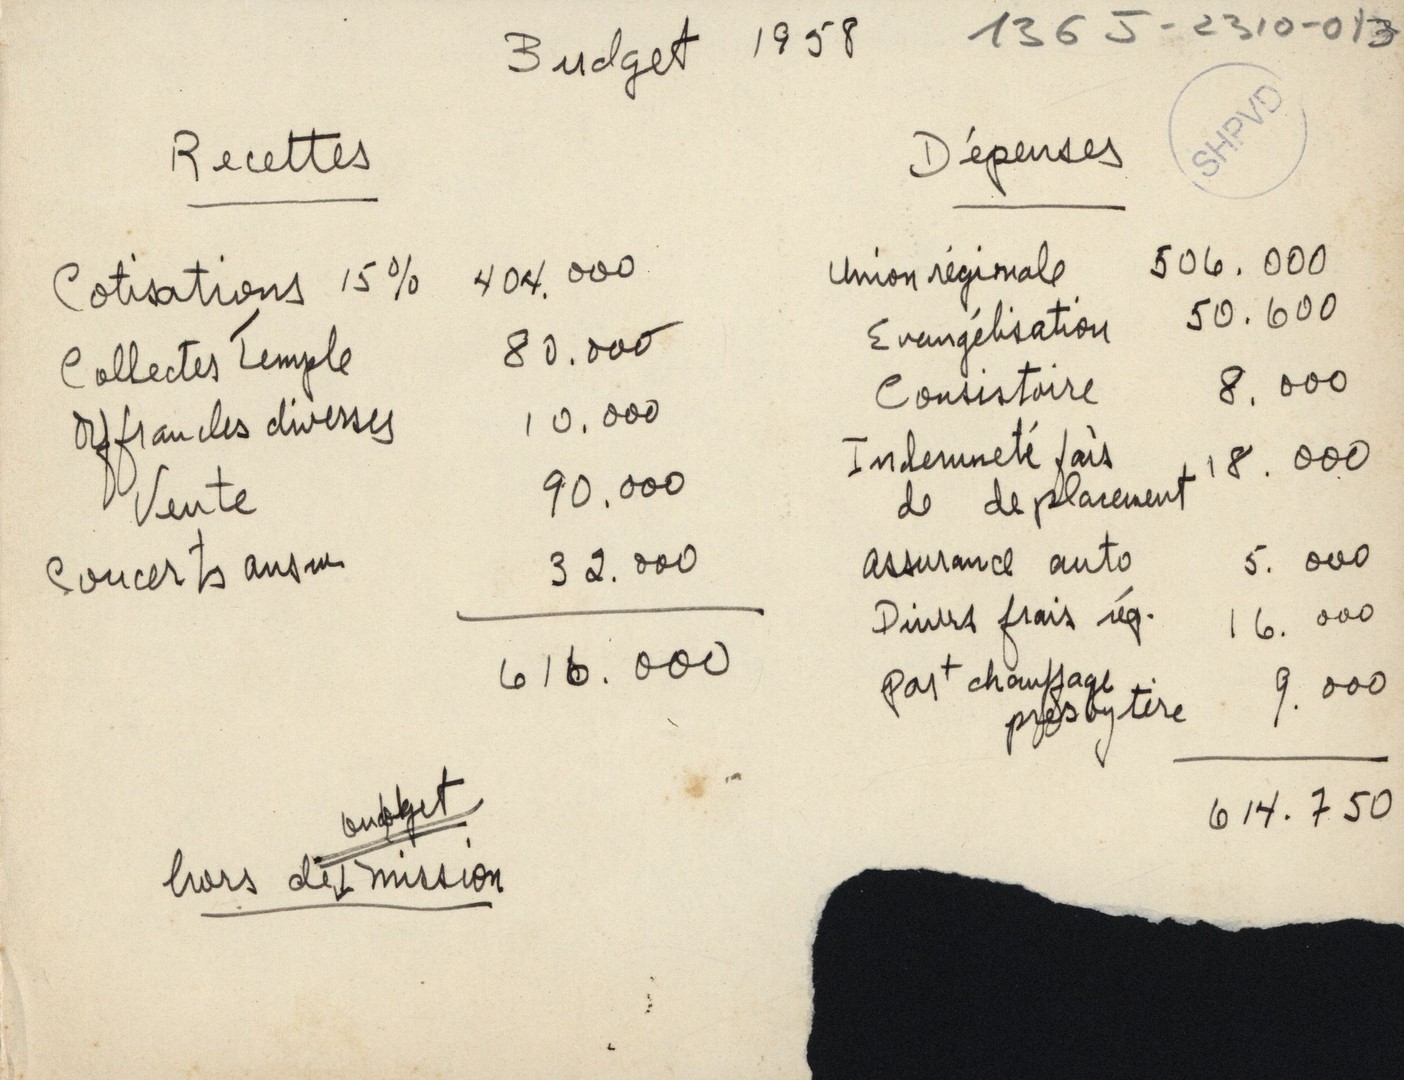 Budget 1958
136 J-2310-013
SHPVD
Recettes
Cotisations 15% 404.000
Collectes Temple 80.000
Offrandes diverses 10.000
Vente 90.000
Concerts 32.000
616.000
Dépenses
Union régionale 506.000
Evangélisation 50.600
Consistoire 8.000
Indemneté fais
de deplacement 18.000
assurance auto 5.000
Divers frais rég. 16.000
part chauffage
presbytère 9.000
614.750
budget
hors de mission